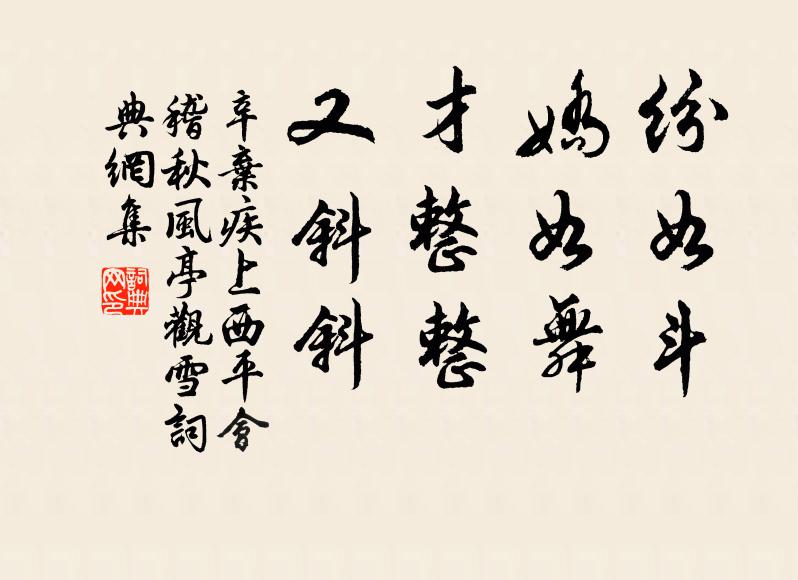 紛如斗
嬌如舞
才整整
又斜斜
辛棄疾上西平會
稽秋風亭觀雪詞
典網集
詞典网印